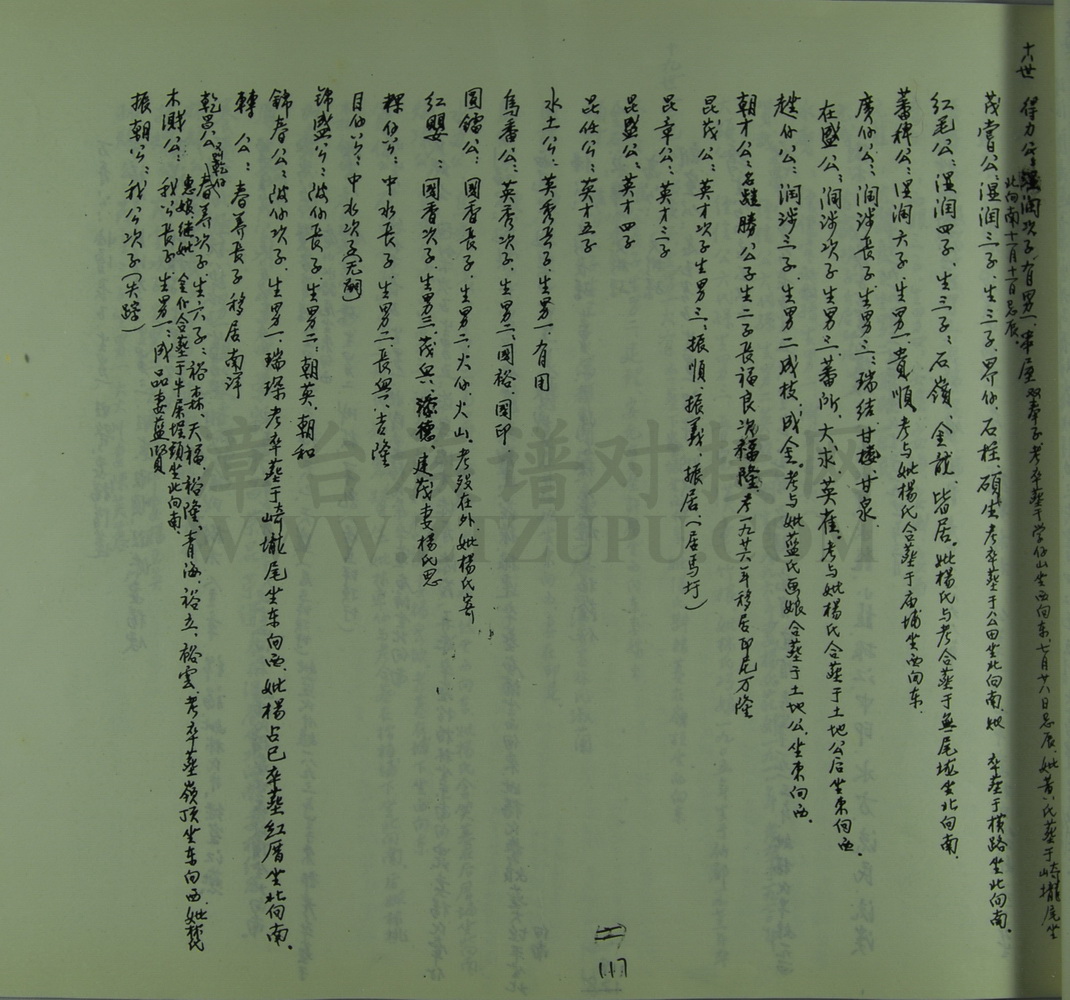 十六世
得力公：湿润次子，有男一，單屋 考卒葬于学仔山坐西向东，七月廿八日忌辰，妣黄氏葬于崎壠尾坐
北向南十一月十一日忌辰
茂當公：湿润三子，生三子，界仔、石柱、碩生，考卒葬于公田坐北向南，妣 卒葬于横路坐北向南.
红毛公：湿润四子，生三子：石嶺、金龍、皆居，妣楊氏与考合葬于無尾垅坐北向南.
蕃稗公：湿润六子，生男一，貴順，考与妣楊氏合葬于庙埔坐西向东.
廣仔公：润涉長子，生男三：瑞结、甘棲、甘泉
在盛公：润涉次子，生男三，蕃所、大求、英雀，考与妣楊氏合葬于土地公后坐東向西.
趖仔公：润涉三子，生男二，成枝、成金，考与妣蓝氏画娘合葬于土地公，坐東向西.
朝才公：名 勝公子，生二子，長福良，次福隆，考一九廿六年移居印尼万隆
昆茂公：英才次子，生男三：振順、振義、振居，（居馬圩）
昆章公：英才三子
昆盛公：英才四子
昆任公：英才五子
水土公：英秀長子，生男一，有田
烏番公：英秀次子，生男二，國裕、國印.
圆鐳公：國香長子，生男二，火仔、火山，考歿在外，妣楊氏寄
红嬰：國香次子，生男三，茂興、添德、建茂，妻楊氏思
粿仔公：中水長子，生男二，長興、吉隆
目仔公：中水次子（无嗣）
锦盛公：波仔長子，生男二，朝英、朝和
錦春公：波仔次子，生男一，瑞琛，考卒葬于崎壠尾坐东向西，妣楊占已卒葬红厝坐北向南.
轉公：春養長子，移居南洋
乾員公 春養次子，生六子：裕森、天福、裕隆、青海、裕立、裕雲，考卒葬嶺顶坐东向西，妣楚氏
惠娘继妣 金仔合葬于牛屎埕頭坐北向南
木溅公：我公長子，生男一：成品，妻蓝賢
振朝公：我公次子（失踪）
漳台族谱对接网
WWW.ZTZUPU.COM
117